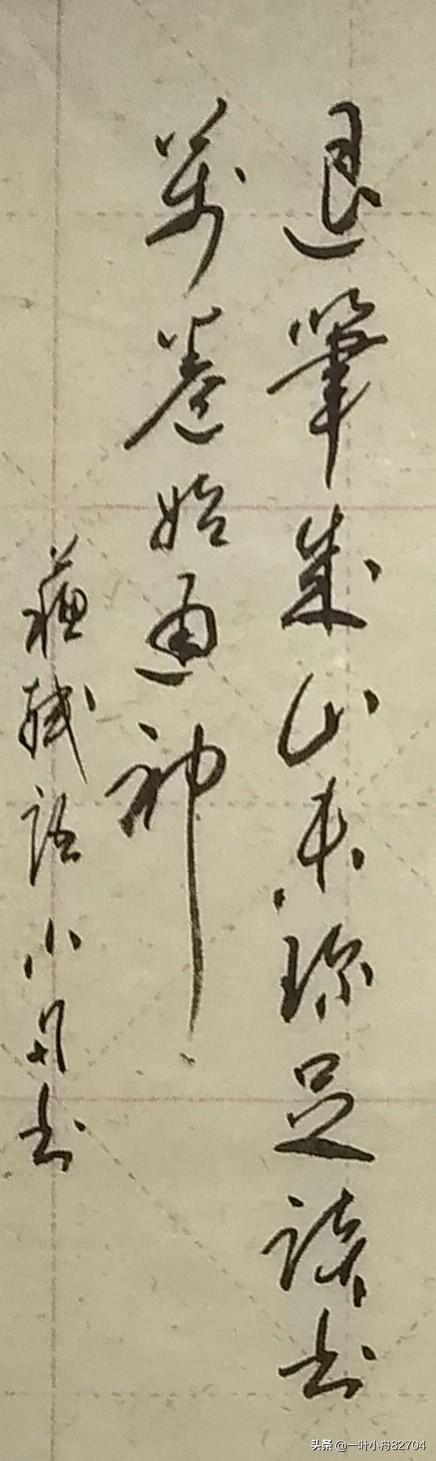 退筆成山未珍足讀书
萬卷始通神
蘇軾語小舟书
头条 @一叶小舟82704